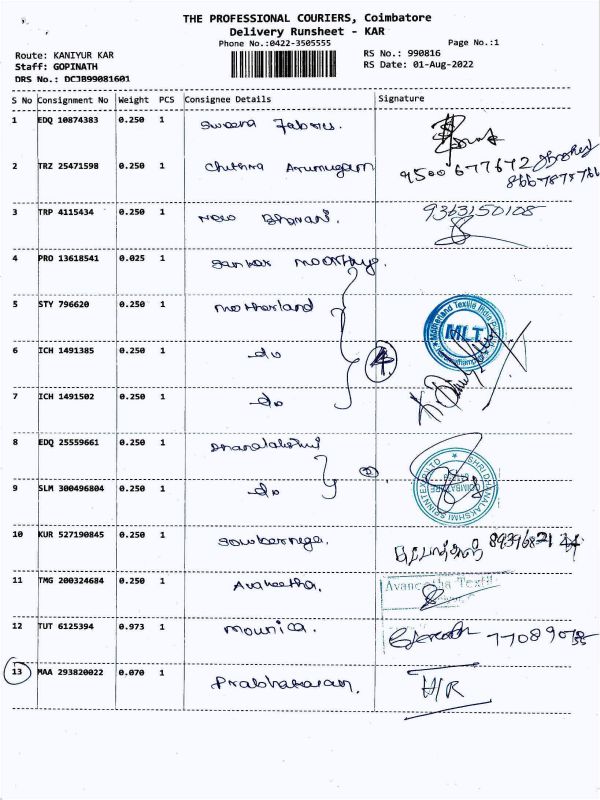 THE PROFESSIONAL COURIERS, Coimbatore
Delivery Runsheet - KAR
Phone No.:0422-3505555
Page No.:1
Route: KANIYUR KAR
RS No.: 990816
Staff: GOPINATH
RS Date: 01-Aug-2022
DRS No.: DCJB99081601
S No Consignment No Weight PCS Consignee Details Signature
1 EDQ 10874383 0.250 1 Sweena Fabrics.
2 TRZ 25471598 0.250 1 Chithra Arumugam 9500677672
3 TRP 4115434 0.250 1 New Bhavani. 9363150108
4 PRO 13618541 0.025 1 Sankar Moorthy.
5 STY 796620 0.250 1 Motherland
MLT
6 ICH 1491385 0.250 1 do 4
7 ICH 1491502 0.250 1 do
8 EDQ 25559661 0.250 1 Dhanalakshmi
9 SLM 300496804 0.250 1 do 2
SHRI DHANALAKSHMI SPINNTEX (P) LTD
COIMBATORE
10 KUR 527190845 0.250 1 Sowbernega.
11 TMG 200324684 0.250 1 Avaneetha. Avaneetha Textil
12 TUT 6125394 0.973 1 Mounica.
13 MAA 293820022 0.070 1 Prabhakaran. H/R